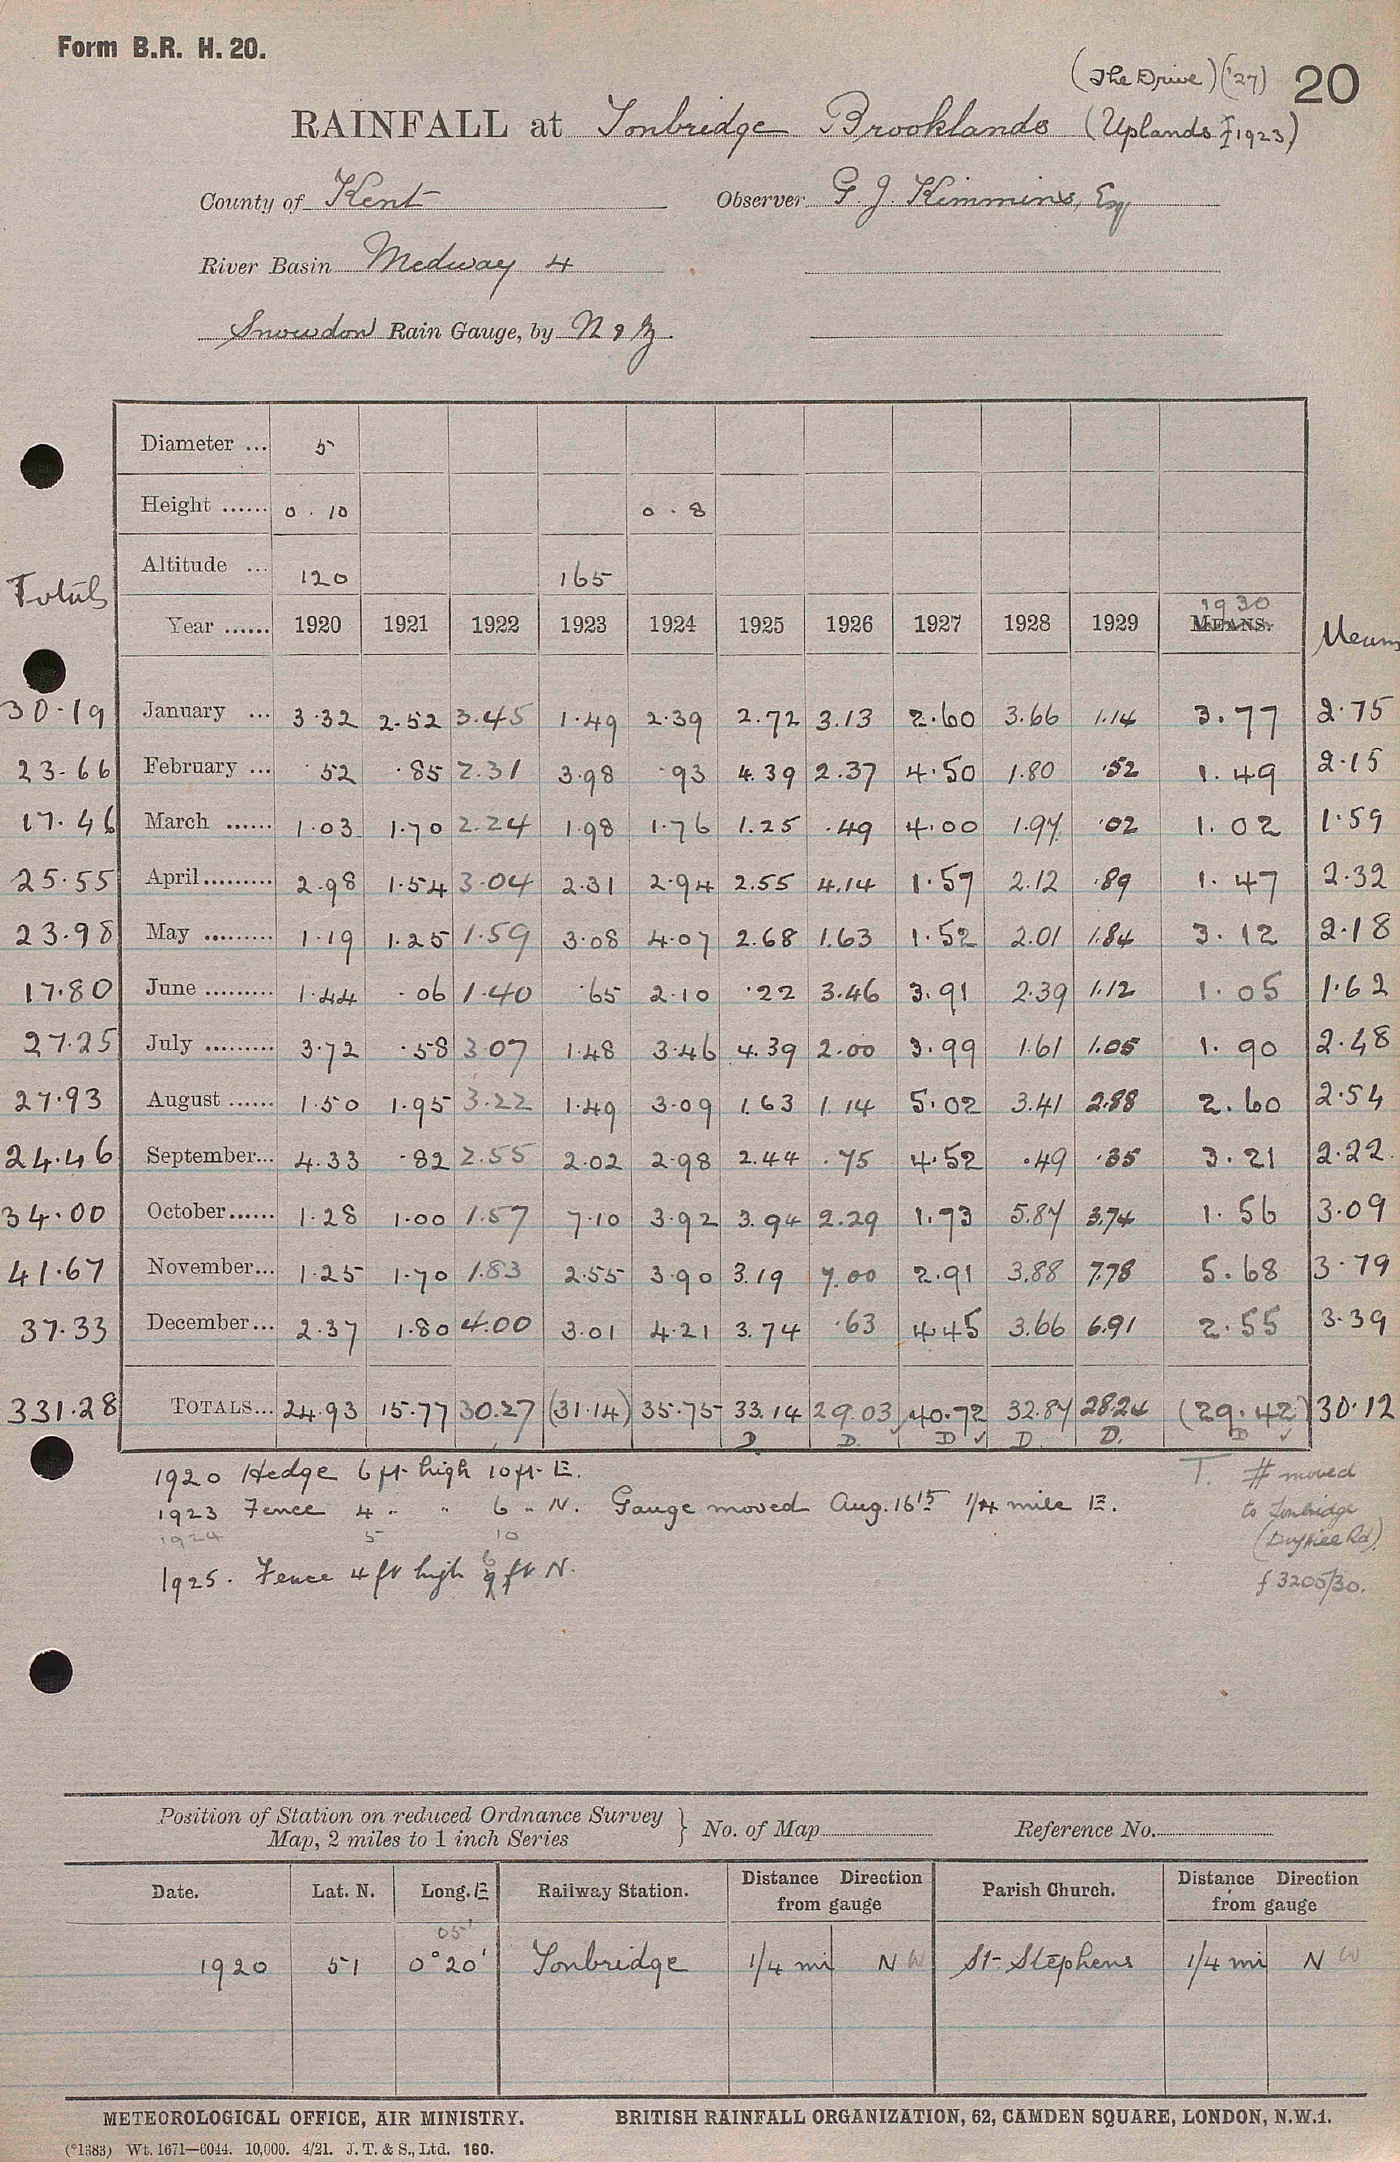 Form B.R. H. 20.
(The Drive) ('27) 20
RAINFALL at Tonbridge Brooklands (Uplands f 1923)
County of Kent Observer G. J. Kimmins, Esq
River Basin Medway 4
Snowdon Rain Gauge, by N & Z.
Diameter ... 5
Height ...... 0 . 10 0 . 8
Altitude ... 120 165
Totals Year ...... 1920 1921 1922 1923 1924 1925 1926 1927 1928 1929 1930 MEANS. Means
30.19 January ... 3.32 2.52 3.45 1.49 2.39 2.72 3.13 2.60 3.66 1.14 3.77 2.75
23.66 February ... .52 .85 2.31 3.98 .93 4.39 2.37 4.50 1.80 .52 1.49 2.15
17.46 March ...... 1.03 1.70 2.24 1.98 1.76 1.25 .49 4.00 1.97 .02 1.02 1.59
25.55 April......... 2.98 1.54 3.04 2.31 2.94 2.55 4.14 1.57 2.12 .89 1.47 2.32
23.98 May ......... 1.19 1.25 1.59 3.08 4.07 2.68 1.63 1.52 2.01 1.84 3.12 2.18
17.80 June ......... 1.44 .06 1.40 .65 2.10 .22 3.46 3.91 2.39 1.12 1.05 1.62
27.25 July ......... 3.72 .58 3.07 1.48 3.46 4.39 2.00 3.99 1.61 1.05 1.90 2.48
27.93 August ...... 1.50 1.95 3.22 1.49 3.09 1.63 1.14 5.02 3.41 2.88 2.60 2.54
24.46 September... 4.33 .82 2.55 2.02 2.98 2.44 .75 4.52 .49 .35 3.21 2.22
34.00 October...... 1.28 1.00 1.57 7.10 3.92 3.94 2.29 1.73 5.87 3.74 1.56 3.09
41.67 November... 1.25 1.70 1.83 2.55 3.90 3.19 7.00 2.91 3.88 7.78 5.68 3.79
37.33 December... 2.37 1.80 4.00 3.01 4.21 3.74 .63 4.45 3.66 6.91 2.55 3.39
331.28 TOTALS... 24.93 15.77 30.27 (31.14) 35.75 33.14 29.03 40.72 32.87 28.24 (29.42) 30.12
D D. D ✓ D D. D ✓
1920 Hedge 6 ft. high 10 ft. E. T. # moved
1923 Fence 4 " " 6 " N. Gauge moved Aug. 16 15 1/4 mile E. to Tonbridge
1924 5 10
f 3205/30.
1925. Fence 4 ft high 6 9 ft N.
Position of Station on reduced Ordnance Survey
Map, 2 miles to 1 inch Series } No. of Map Reference No.
Date. Lat. N. Long. E Railway Station. Distance Direction from gauge Parish Church. Distance Direction from gauge
05'
1920 51 0°20' Tonbridge 1/4 mi N W St Stephens 1/4 mi N W
METEOROLOGICAL OFFICE, AIR MINISTRY. BRITISH RAINFALL ORGANIZATION, 62, CAMDEN SQUARE, LONDON, N.W.1.
(*1383) Wt. 1671—6044. 10,000. 4/21. J. T. & S., Ltd. 160.